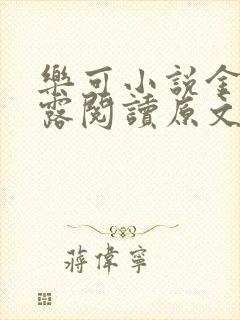 樂可小說金
露閱讀原文
蔣偉寧